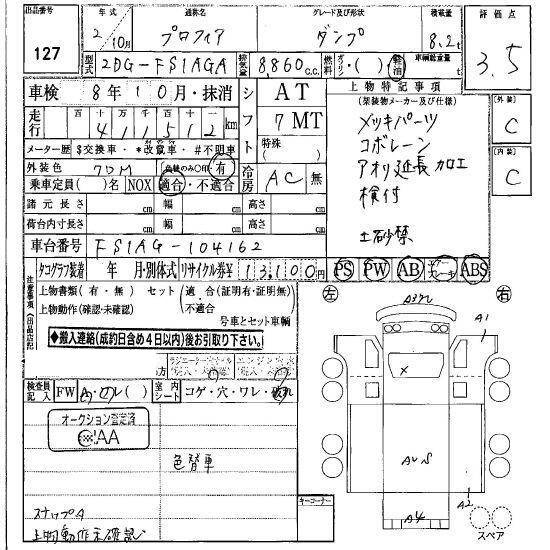 出品番号 127
年式 2年10月 通称名 プロフィア グレード及び形状 ダンプ 積載量 8.2t
型式 2DG-FS1AGA 排気量 8,860c.c. 燃料 ガソリン・( )・軽油 車輌総重量 t
評価点 3.5
車検 8年10月・抹消
走行 百 十 万 千 百 十 一 411512km
メーター歴 $交換車・*改竄車・#不明車
外装色 クロM 色替のみ○印 有
乗車定員( )名 NOX 適合・不適合
シフト AT 7MT 特殊( )
冷房 AC 無
上物特記事項
(架装物メーカー及び仕様)
メッキパーツ
コボレーン
アオリ延長加工
検付
土砂禁
外装 C
内装 C
諸元長さ cm 幅 cm 高さ cm
荷台内寸長さ cm 幅 cm 高さ cm
車台番号 FS1AG-104162
タコグラフ装着 年 月・別体式 リサイクル券¥ 13,100円
PS PW AB エアーブレーキ ABS
注意事項(出品店記
上物書類(有・無) セット(適合(証明有・証明無)・不適合
上物動作(確認・未確認) 号車とセット車輌
◆搬入連絡(成約日含め4日以内)後お引取り下さい。
検査員記入 FW 室内シート コゲ・穴・ワレ・破れ
オークション査定済
AA
色替車
スナップA
上物動作未確認
キーコーナー
左 右
A3
A1
X
A4
A2
スペア